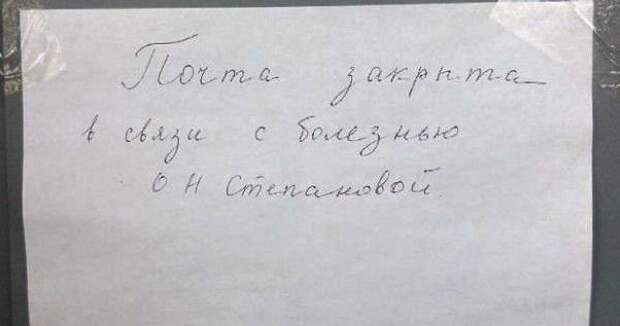 Почта закрыта
в связи с болезнью
О Н Степановой